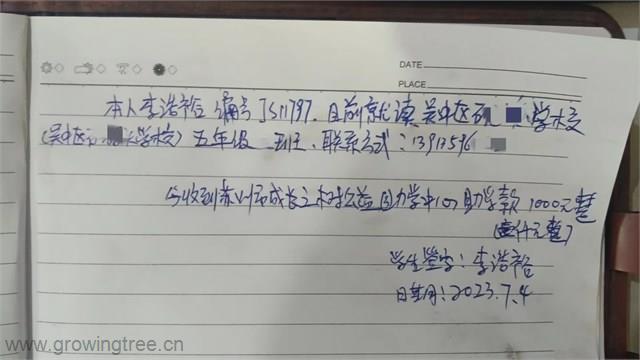 DATE
PLACE
本人李浩裕 编号JS11797. 目前就读 吴中区 学校
(吴中区 学校) 五年级 班. 联系方式: 1391596
今收到苏州市成长之树公益助学中心助学款 1000元整
(壹仟元整)
学生签字: 李浩裕
日期: 2023.7.4
www.growingtree.cn